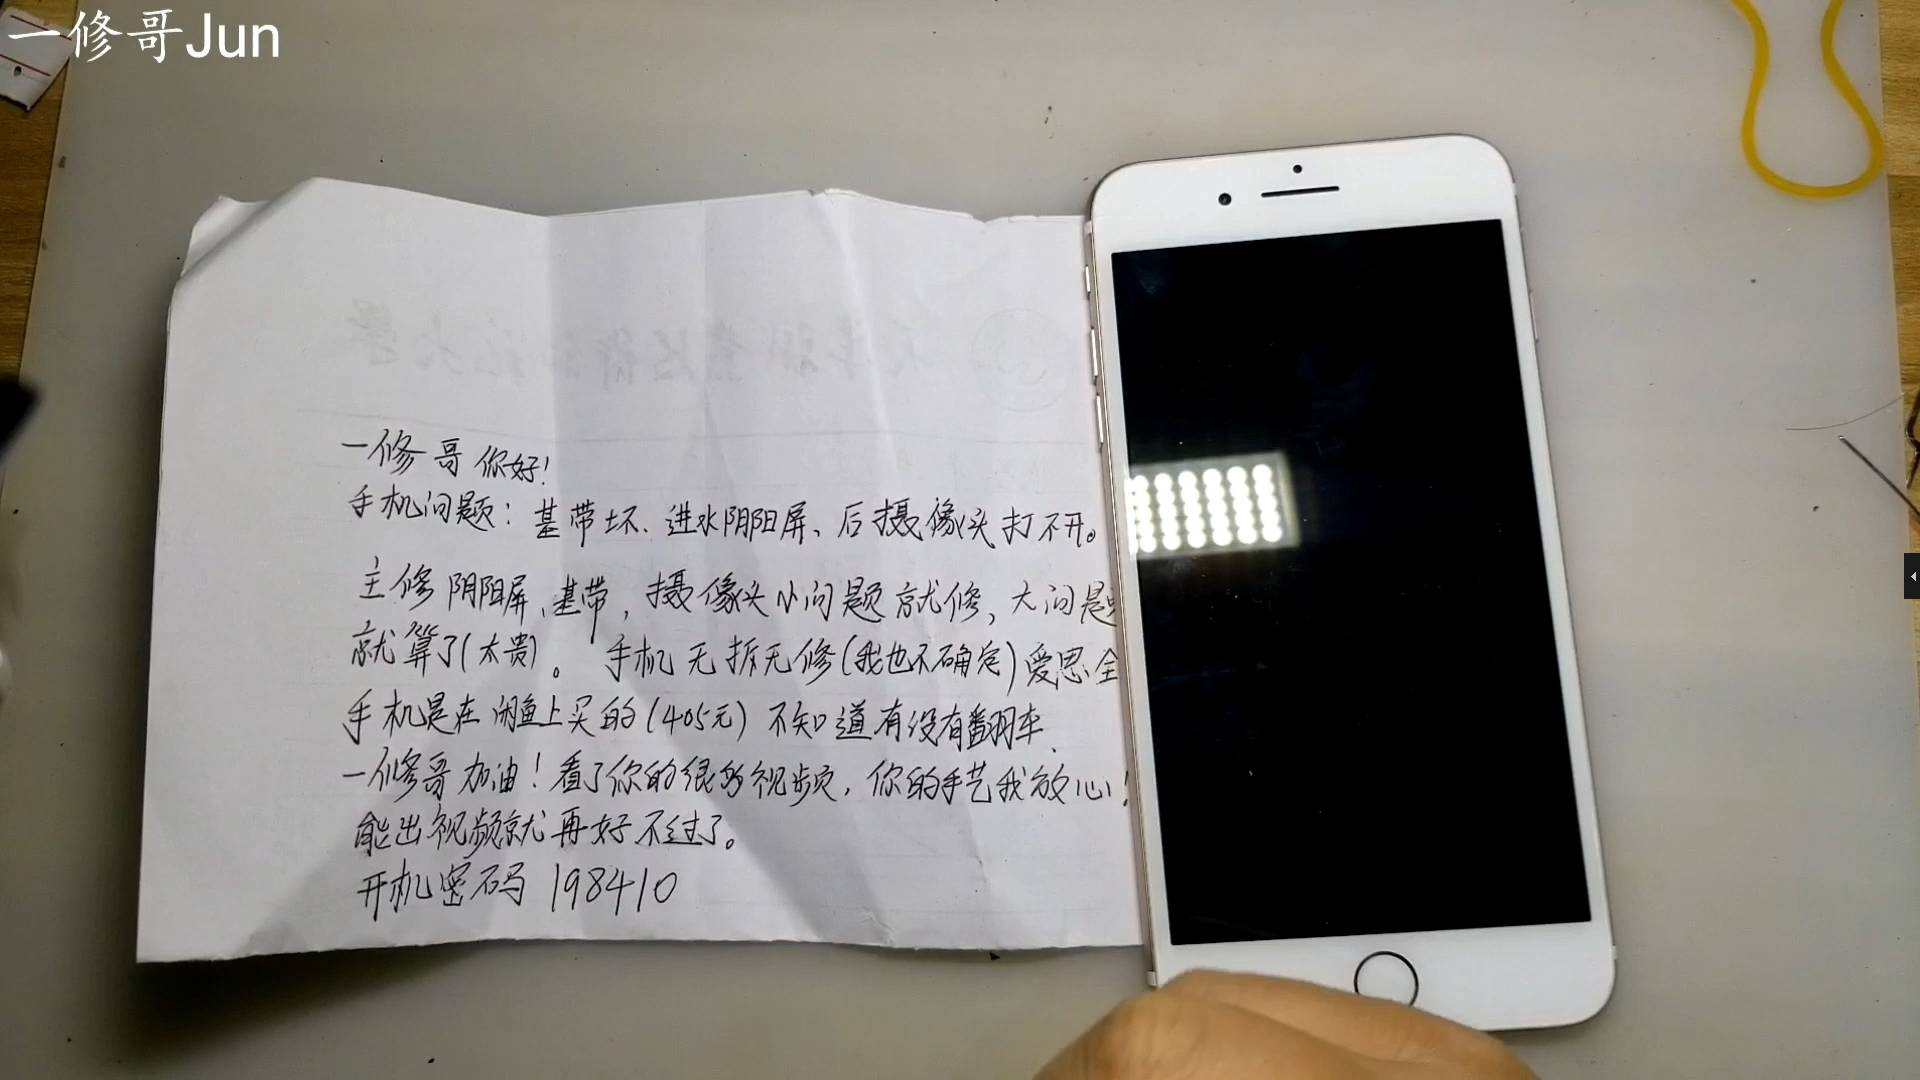 一修哥Jun
一修哥你好！
手机问题：基带坏、进水阴阳屏、后摄像头打不开。
主修阴阳屏、基带，摄像头小问题就修，大问题
就算了(太贵)。手机无拆无修(我也不确定)爱思全
手机是在闲鱼上买的(405元)不知道有没有翻车、
一修哥加油！看了你的很多视频，你的手艺我放心！
能出视频就再好不过了。
开机密码 198410